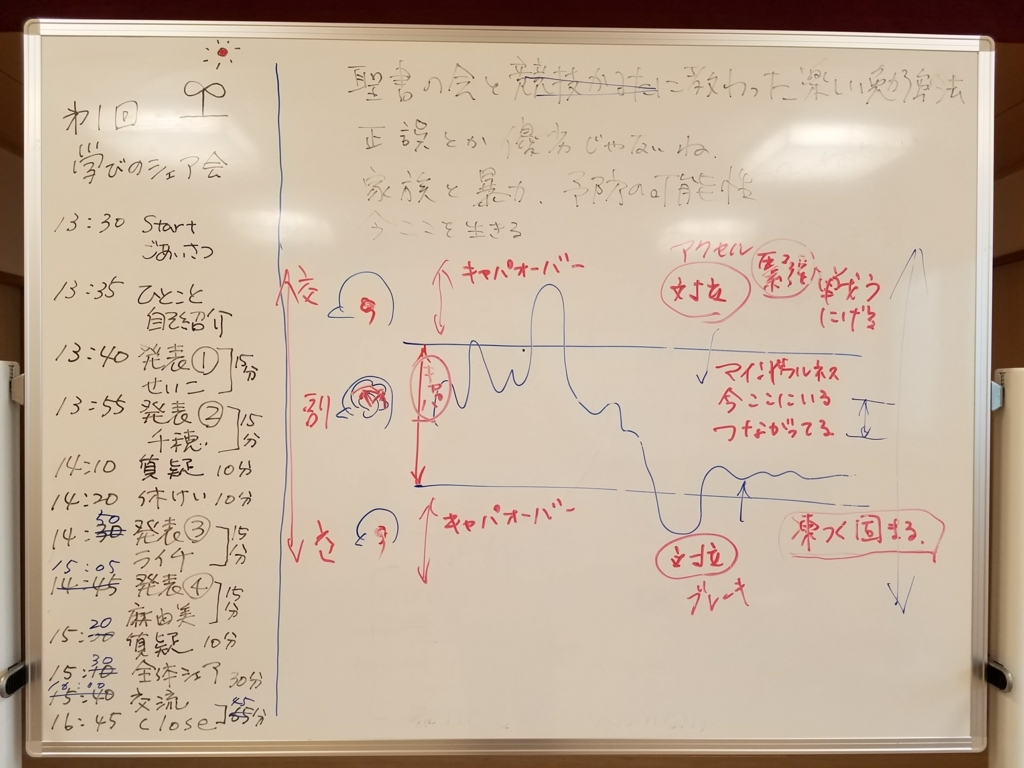 第1回
学びのシェア会
13:30 Start
ごあいさつ
13:35 ひとこと
自己紹介
13:40 発表① 15分
せいこ
13:55 発表② 15分
千穂
14:10 質疑 10分
14:20 休けい 10分
14:30 50 発表③ 15分
ライチ
15:05
14:45 発表④ 15分
麻由美
15:20 質疑 10分
15:30 全体シェア 30分
16:00
15:40 交流 45分
16:45 close
聖書の会と競技かるたに教わった楽しい勉強法
正誤とか優劣じゃないね。
家族と暴力、予防の可能性
今ここを生きる
交
副
キャパオーバー
アクセル
対立
緊張
にげる
マインドフルネス
今ここにいる
つながってる
キャパオーバー
対立
ブレーキ
凍つく固まる。